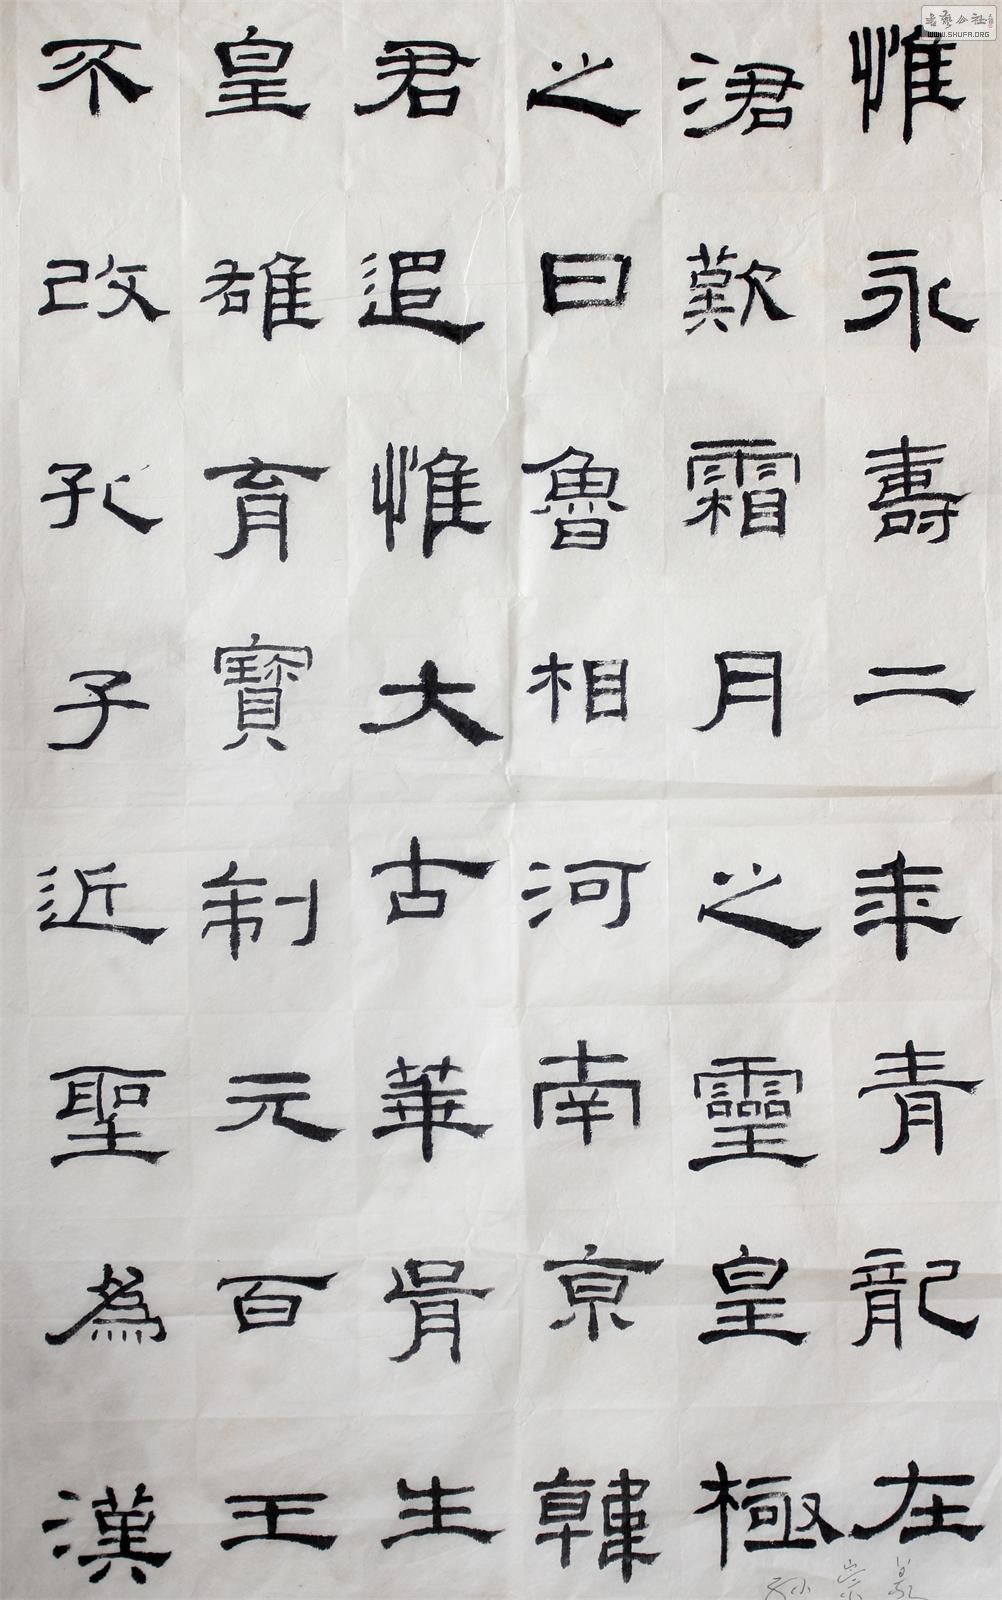 惟永壽二年青龍在
涒歎霜月之靈皇極
之日魯相河南京韓
君追惟大古華胥生
皇雄育寶制元百王
不改孔子近聖為漢
孙崇義
書藝公社
WWW.SHUFA.ORG